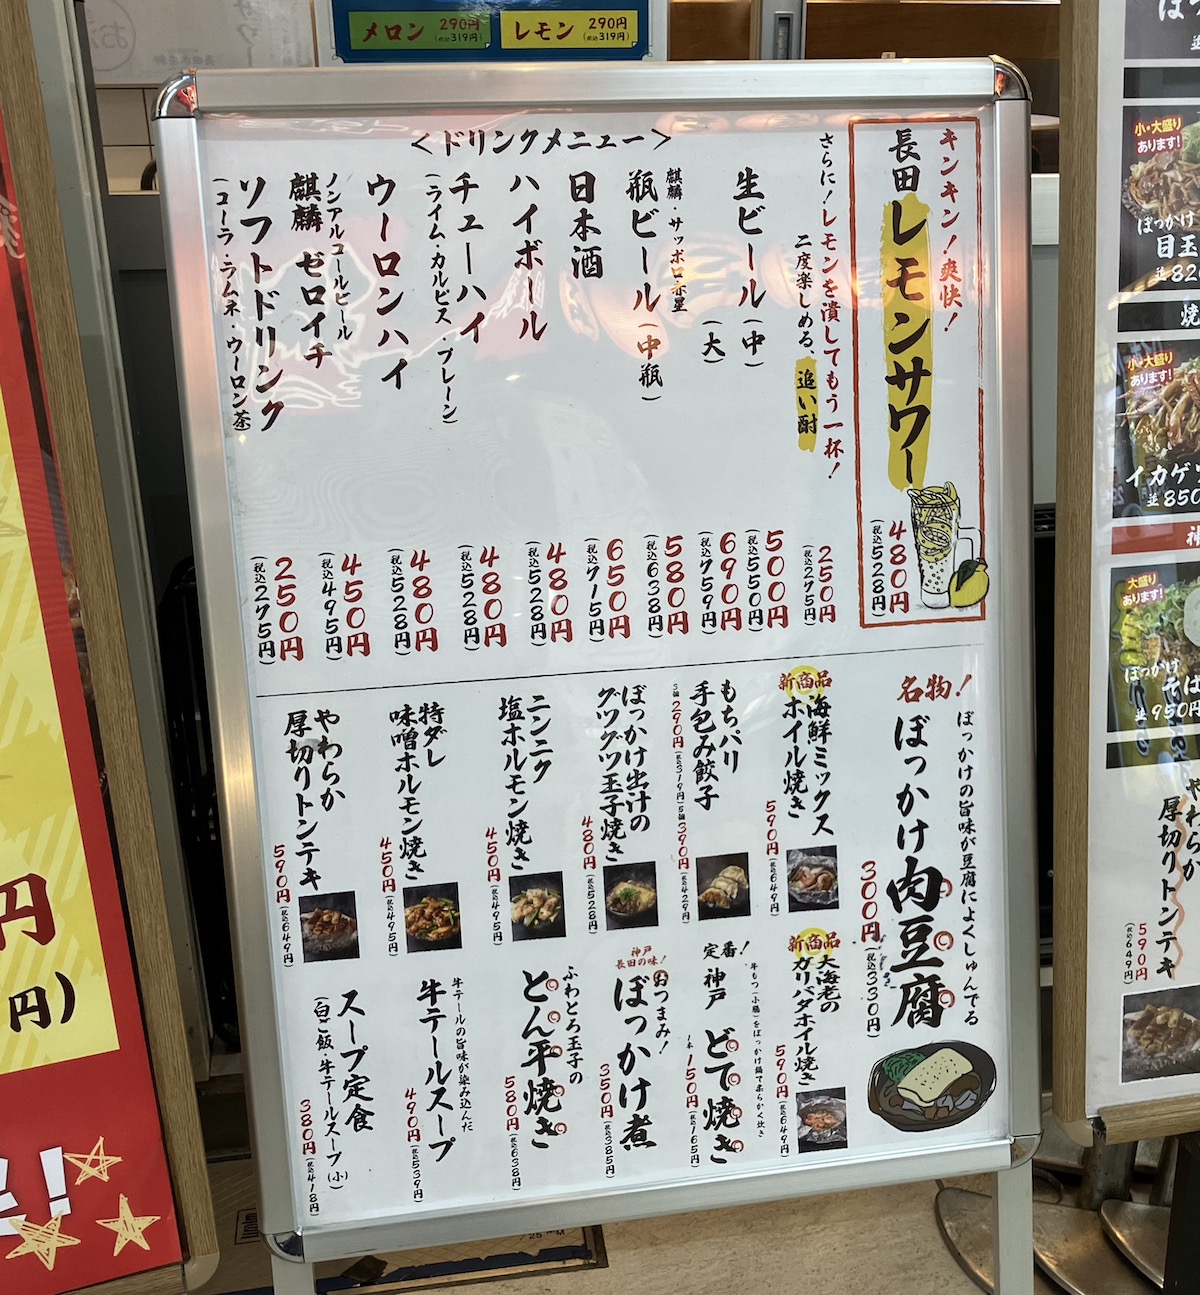 メロン 290円
(税込319円)
レモン 290円
(税込319円)
<ドリンクメニュー>
キンキン!爽快!
長田レモンサワー
480円
(税込528円)
さらに!レモンを潰してもう一杯!
二度楽しめる、追い酎
250円
(税込275円)
生ビール(中)
500円
(税込550円)
(大)
690円
(税込759円)
麒麟・サッポロ赤星
瓶ビール(中瓶)
580円
(税込638円)
日本酒
650円
(税込715円)
ハイボール
480円
(税込528円)
チューハイ
(ライム・カルピス・プレーン)
480円
(税込528円)
ウーロンハイ
480円
(税込528円)
ノンアルコールビール
麒麟 ゼロイチ
450円
(税込495円)
ソフトドリンク
(コーラ・ラムネ・ウーロン茶)
250円
(税込275円)
ぼっかけの旨味が豆腐によくしゅんでる
名物!ぼっかけ肉豆腐
300円(税込330円)
新商品
海鮮ミックス
ホイル焼き
590円(税込649円)
もちパリ
手包み餃子
3個290円(税込319円)5個390円(税込429円)
ぼっかけ出汁の
グツグツ玉子焼き
480円(税込528円)
ニンニク
塩ホルモン焼き
450円(税込495円)
特ダレ
味噌ホルモン焼き
450円(税込495円)
やわらか
厚切りトンテキ
590円(税込649円)
新商品
大海老の
ガリバタホイル焼き
590円(税込649円)
牛もつ(小腸)をぼっかけ鍋で柔らかく炊き
定番!
神戸 どて焼き
1本150円(税込165円)
神戸
長田の味!
おつまみ!
ぼっかけ煮
350円(税込385円)
ふわとろ玉子の
とん平焼き
580円(税込638円)
牛テールの旨味が染み込んだ
牛テールスープ
490円(税込539円)
スープ定食
(白ご飯・牛テールスープ(小)
380円(税込418円)
小・大盛り
あります!
ぼっかけ
目玉
並82
焼
小・大盛り
あります!
イカゲソ
並850
神
大盛り
あります!
ぼっかけ
そば
並950円
やわらか
厚切りトンテキ
590円
(税込649円)
円
円)